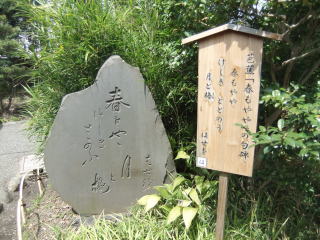 芭蕉「春もやや…」の句碑
春もやや
けしきととのう
月と梅
はせを
春もやゝ
けしき
とゝのふ
月と
梅